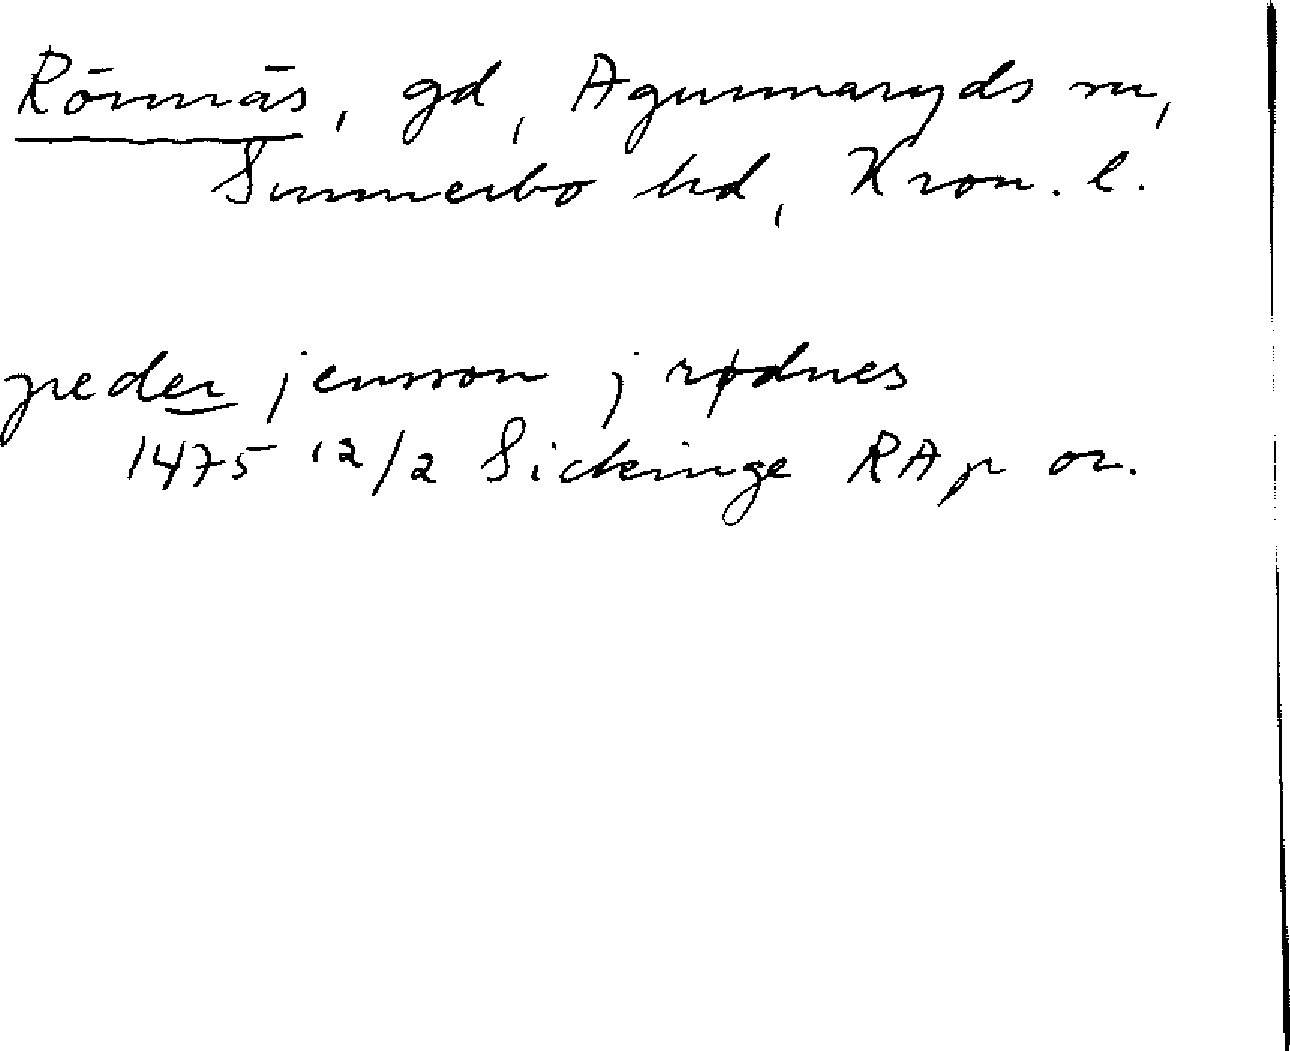 Rönnäs, gd, Agunnaryds sn,
Sunnerbo hd, Kron. l.
peder jensson j rødnes
1475 12/2 Sickinge RAp or.